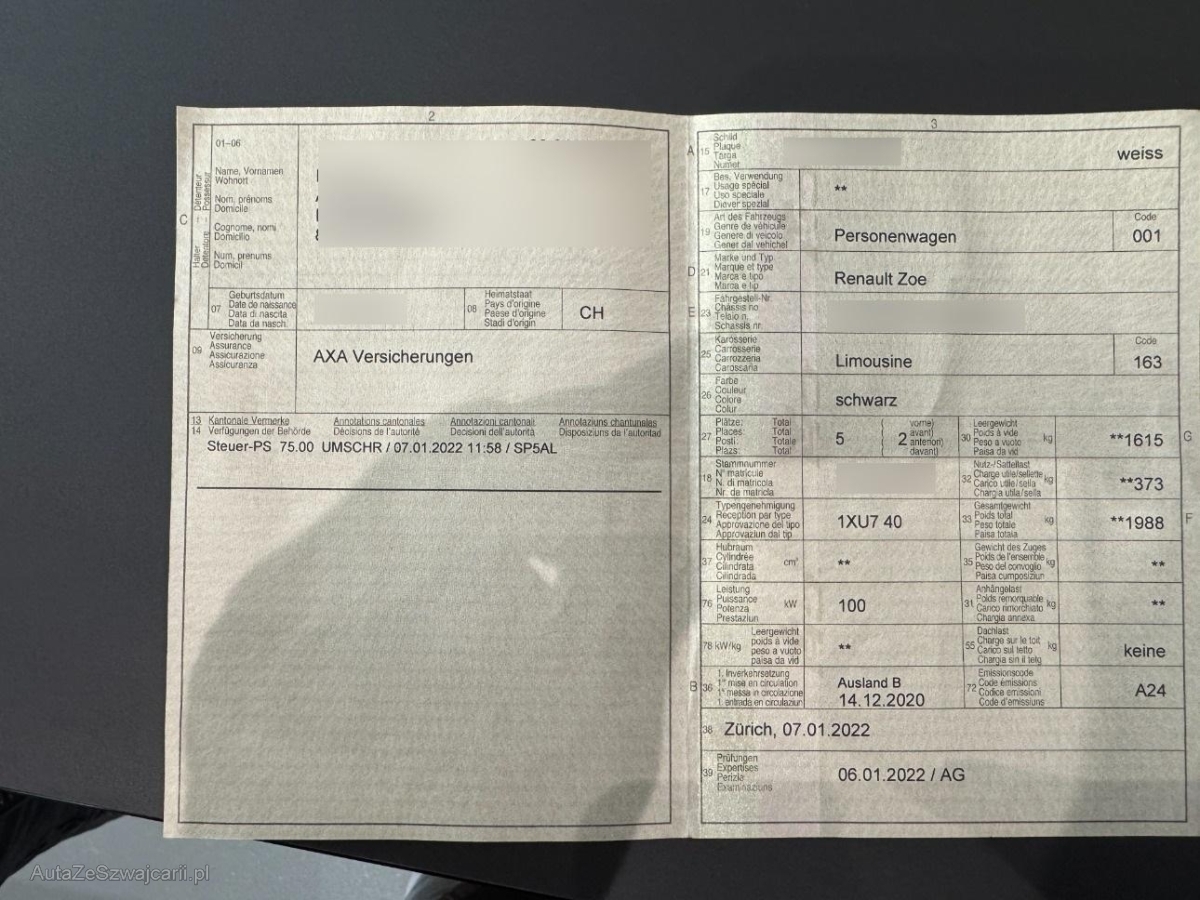 2
01-06
C
Halter Détenteur
Détentore Possessur
Name, Vornamen
Wohnort
Nom, prénoms
Domicile
Cognome, nomi
Domicilio
Num, prenums
Domicil
07
Geburtsdatum
Date de naissance
Data di nascita
Data da nasch.
08
Heimatstaat
Pays d'origine
Paese d'origine
Stadi d'origin
CH
09
Versicherung
Assurance
Assicurazione
Assicuranza
AXA Versicherungen
13 Kantonale Vermerke Annotations cantonales Annotazioni cantonali Annotaziuns chantunalas
14 Verfügungen der Behörde Décisions de l'autorité Decisioni dell'autorità Disposiziuns da l'autoritad
Steuer-PS 75.00 UMSCHR / 07.01.2022 11:58 / SP5AL
3
A 15
Schild
Plaque
Targa
Numer
weiss
17
Bes. Verwendung
Usage spécial
Uso speciale
Diever spezial
**
19
Art des Fahrzeugs
Genre de véhicule
Genere di veicolo
Gener dal vehichel
Personenwagen
Code
001
D 21
Marke und Typ
Marque et type
Marca e tipo
Marca e tip
Renault Zoe
E 23
Fahrgestell-Nr.
Châssis no
Telaio n.
Schassis nr.
25
Karosserie
Carrosserie
Carrozzeria
Carossaria
Limousine
Code
163
26
Farbe
Couleur
Colore
Colur
schwarz
27
Plätze: Total
Places: Total
Posti: Totale
Plazs: Total
5
2
vorne)
avant)
anteriori)
davant)
30
Leergewicht
Poids à vide
Peso a vuoto
Paisa da vid
kg
**1615
G
18
Stammnummer
N° matricule
N. di matricola
Nr. da matricla
32
Nutz-/Sattellast
Charge utile/sellette
Carico utile/sella
Chargia utila/sella
kg
**373
24
Typengenehmigung
Réception par type
Approvazione del tipo
Approvaziun dal tip
1XU7 40
33
Gesamtgewicht
Poids total
Peso totale
Paisa totala
kg
**1988
F
37
Hubraum
Cylindrée
Cilindrata
Cilindrada
cm³
**
35
Gewicht des Zuges
Poids de l'ensemble
Peso del convoglio
Paisa cumposiziun
kg
**
76
Leistung
Puissance
Potenza
Prestaziun
kW
100
31
Anhängelast
Poids remorquable
Carico rimorchiato
Chargia annexa
kg
**
78 kW/kg
Leergewicht
poids à vide
peso a vuoto
paisa da vid
**
55
Dachlast
Charge sur le toit
Carico sul tetto
Chargia sin il tetg
kg
keine
B 36
1. Inverkehrsetzung
1re mise en circulation
1a messa in circolazione
1. entrada en circulaziun
Ausland B
14.12.2020
72
Emissionscode
Code émissions
Codice emissioni
Code d'emissiuns
A24
38
Zürich, 07.01.2022
39
Prüfungen
Expertises
Perizie
Examinaziuns
06.01.2022 / AG
AutaZeSzwajcarii.pl